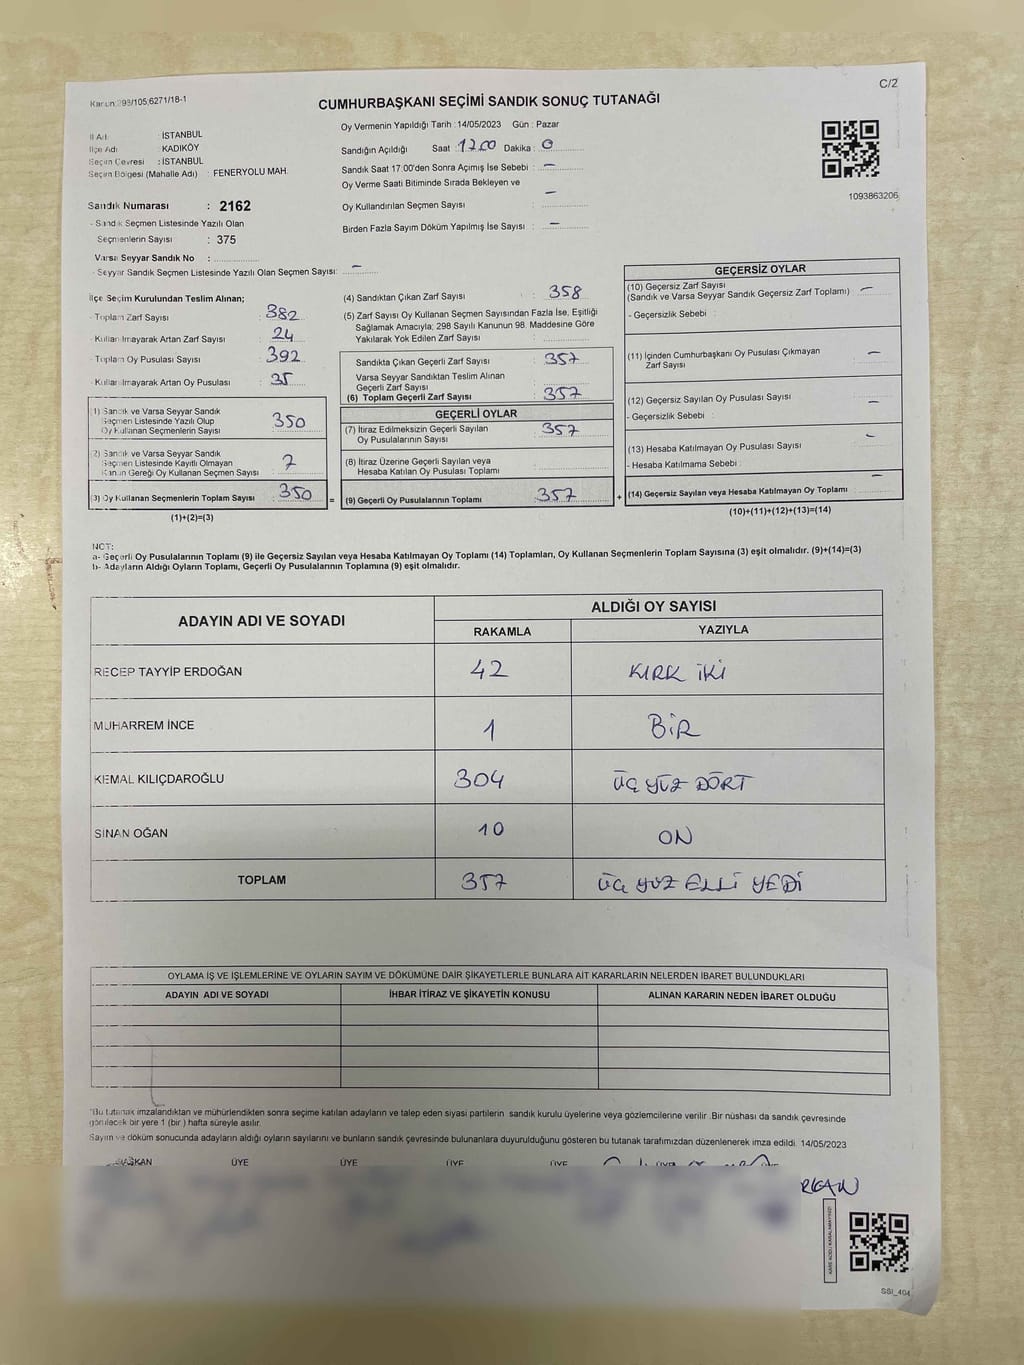 C/2
Kanun:298/105,6271/18-1
CUMHURBAŞKANI SEÇİMİ SANDIK SONUÇ TUTANAĞI
Oy Vermenin Yapıldığı Tarih :14/05/2023 Gün : Pazar
İl Adı : İSTANBUL
İlçe Adı : KADIKÖY
Seçim Çevresi : İSTANBUL
Seçim Bölgesi (Mahalle Adı) : FENERYOLU MAH.
Sandığın Açıldığı Saat :1700 Dakika : 0
Sandık Saat 17:00'den Sonra Açımış İse Sebebi : —
Oy Verme Saati Bitiminde Sırada Bekleyen ve
Oy Kullandırılan Seçmen Sayısı : —
Birden Fazla Sayım Döküm Yapılmış İse Sayısı : —
1093863206
Sandık Numarası : 2162
- Sandık Seçmen Listesinde Yazılı Olan
Seçmenlerin Sayısı : 375
Varsa Seyyar Sandık No :
- Seyyar Sandık Seçmen Listesinde Yazılı Olan Seçmen Sayısı: —
İlçe Seçim Kurulundan Teslim Alınan;
- Toplam Zarf Sayısı : 382
- Kullanılmayarak Artan Zarf Sayısı : 24
- Toplam Oy Pusulası Sayısı : 392
- Kullanılmayarak Artan Oy Pusulası : 35
1) Sandık ve Varsa Seyyar Sandık
Seçmen Listesinde Yazılı Olup
Oy Kullanan Seçmenlerin Sayısı 350
2) Sandık ve Varsa Seyyar Sandık
Seçmen Listesinde Kayıtlı Olmayan
Kanun Gereği Oy Kullanan Seçmen Sayısı 7
(3) Oy Kullanan Seçmenlerin Toplam Sayısı 350 =
(1)+(2)=(3)
(4) Sandıktan Çıkan Zarf Sayısı : 358
(5) Zarf Sayısı Oy Kullanan Seçmen Sayısından Fazla İse, Eşitliği
Sağlamak Amacıyla; 298 Sayılı Kanunun 98. Maddesine Göre
Yakılarak Yok Edilen Zarf Sayısı :
Sandıkta Çıkan Geçerli Zarf Sayısı : 357
Varsa Seyyar Sandıktan Teslim Alınan
Geçerli Zarf Sayısı
(6) Toplam Geçerli Zarf Sayısı : 357
GEÇERLİ OYLAR
(7) İtiraz Edilmeksizin Geçerli Sayılan
Oy Pusulalarının Sayısı 357
(8) İtiraz Üzerine Geçerli Sayılan veya
Hesaba Katılan Oy Pusulası Toplamı
(9) Geçerli Oy Pusulalarının Toplamı 357 +
GEÇERSİZ OYLAR
(10) Geçersiz Zarf Sayısı
(Sandık ve Varsa Seyyar Sandık Geçersiz Zarf Toplamı) —
- Geçersizlik Sebebi :
(11) İçinden Cumhurbaşkanı Oy Pusulası Çıkmayan
Zarf Sayısı —
(12) Geçersiz Sayılan Oy Pusulası Sayısı —
- Geçersizlik Sebebi :
(13) Hesaba Katılmayan Oy Pusulası Sayısı —
- Hesaba Katılmama Sebebi :
(14) Geçersiz Sayılan veya Hesaba Katılmayan Oy Toplamı —
(10)+(11)+(12)+(13)=(14)
NOT:
a- Geçerli Oy Pusulalarının Toplamı (9) ile Geçersiz Sayılan veya Hesaba Katılmayan Oy Toplamı (14) Toplamları, Oy Kullanan Seçmenlerin Toplam Sayısına (3) eşit olmalıdır. (9)+(14)=(3)
b- Adayların Aldığı Oyların Toplamı, Geçerli Oy Pusulalarının Toplamına (9) eşit olmalıdır.
ADAYIN ADI VE SOYADI ALDIĞI OY SAYISI
RAKAMLA YAZIYLA
RECEP TAYYİP ERDOĞAN 42 KIRK İKİ
MUHARREM İNCE 1 BİR
KEMAL KILIÇDAROĞLU 304 ÜÇ YÜZ DÖRT
SİNAN OĞAN 10 ON
TOPLAM 357 ÜÇ YÜZ ELLİ YEDİ
OYLAMA İŞ VE İŞLEMLERİNE VE OYLARIN SAYIM VE DÖKÜMÜNE DAİR ŞİKAYETLERLE BUNLARA AİT KARARLARIN NELERDEN İBARET BULUNDUKLARI
ADAYIN ADI VE SOYADI İHBAR İTİRAZ VE ŞİKAYETİN KONUSU ALINAN KARARIN NEDEN İBARET OLDUĞU
*Bu tutanak imzalandıktan ve mühürlendikten sonra seçime katılan adayların ve talep eden siyasi partilerin sandık kurulu üyelerine veya gözlemcilerine verilir. Bir nüshası da sandık çevresinde
görülecek bir yere 1 (bir ) hafta süreyle asılır.
Sayım ve döküm sonucunda adayların aldığı oyların sayılarını ve bunların sandık çevresinde bulunanlara duyurulduğunu gösteren bu tutanak tarafımızdan düzenlenerek imza edildi. 14/05/2023
BAŞKAN ÜYE ÜYE ÜYE ÜYE
SSI_404